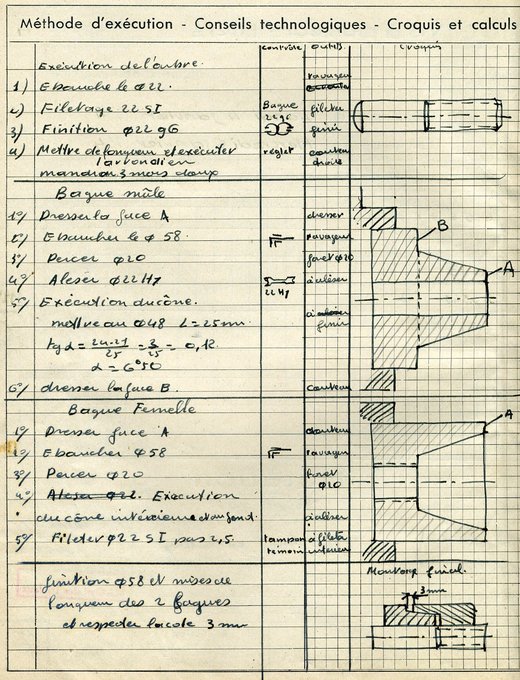 Méthode d'exécution - Conseils technologiques - Croquis et calculs
contrôle outils croquis
Exécution de l'arbre.
1) Ebauche le φ22. ravageur
2) Filetage 22 SI Bague 22 g6 fileter
3) Finition φ22 g6 finir
4) Mettre de longueur et exécuter réglet couteau
l'arrondi en droite
mandrin 3 mors doux
Bague mâle
1°/ Dresser la face A dresser
2°/ Ebaucher le φ 58. ravageur
3°/ Percer φ20 foret φ20
4°/ Aléser φ22H7 22 H7 à aléser
5°/ Exécution du cône.
mettre au φ48 L=25mm. finir
tg α = 24-21/25 = 3/25 = 0,12
α = 6°50
6°/ dresser la face B. couteau
B
A
Bague Femelle
1°/ Dresser face A couteau
2°/ Ebaucher φ58 ravageur
3°/ Percer φ20 foret φ20
4°/ Aléser φ22. Exécution
du cône intérieur et au fond. à aléser
5°/ Fileter φ22 SI pas 2,5. tampon à fileter
témoin intérieur
A
finition φ58 et mises de
longueur des 2 bagues
et respecter la cote 3 mm
Montage final.
3mm